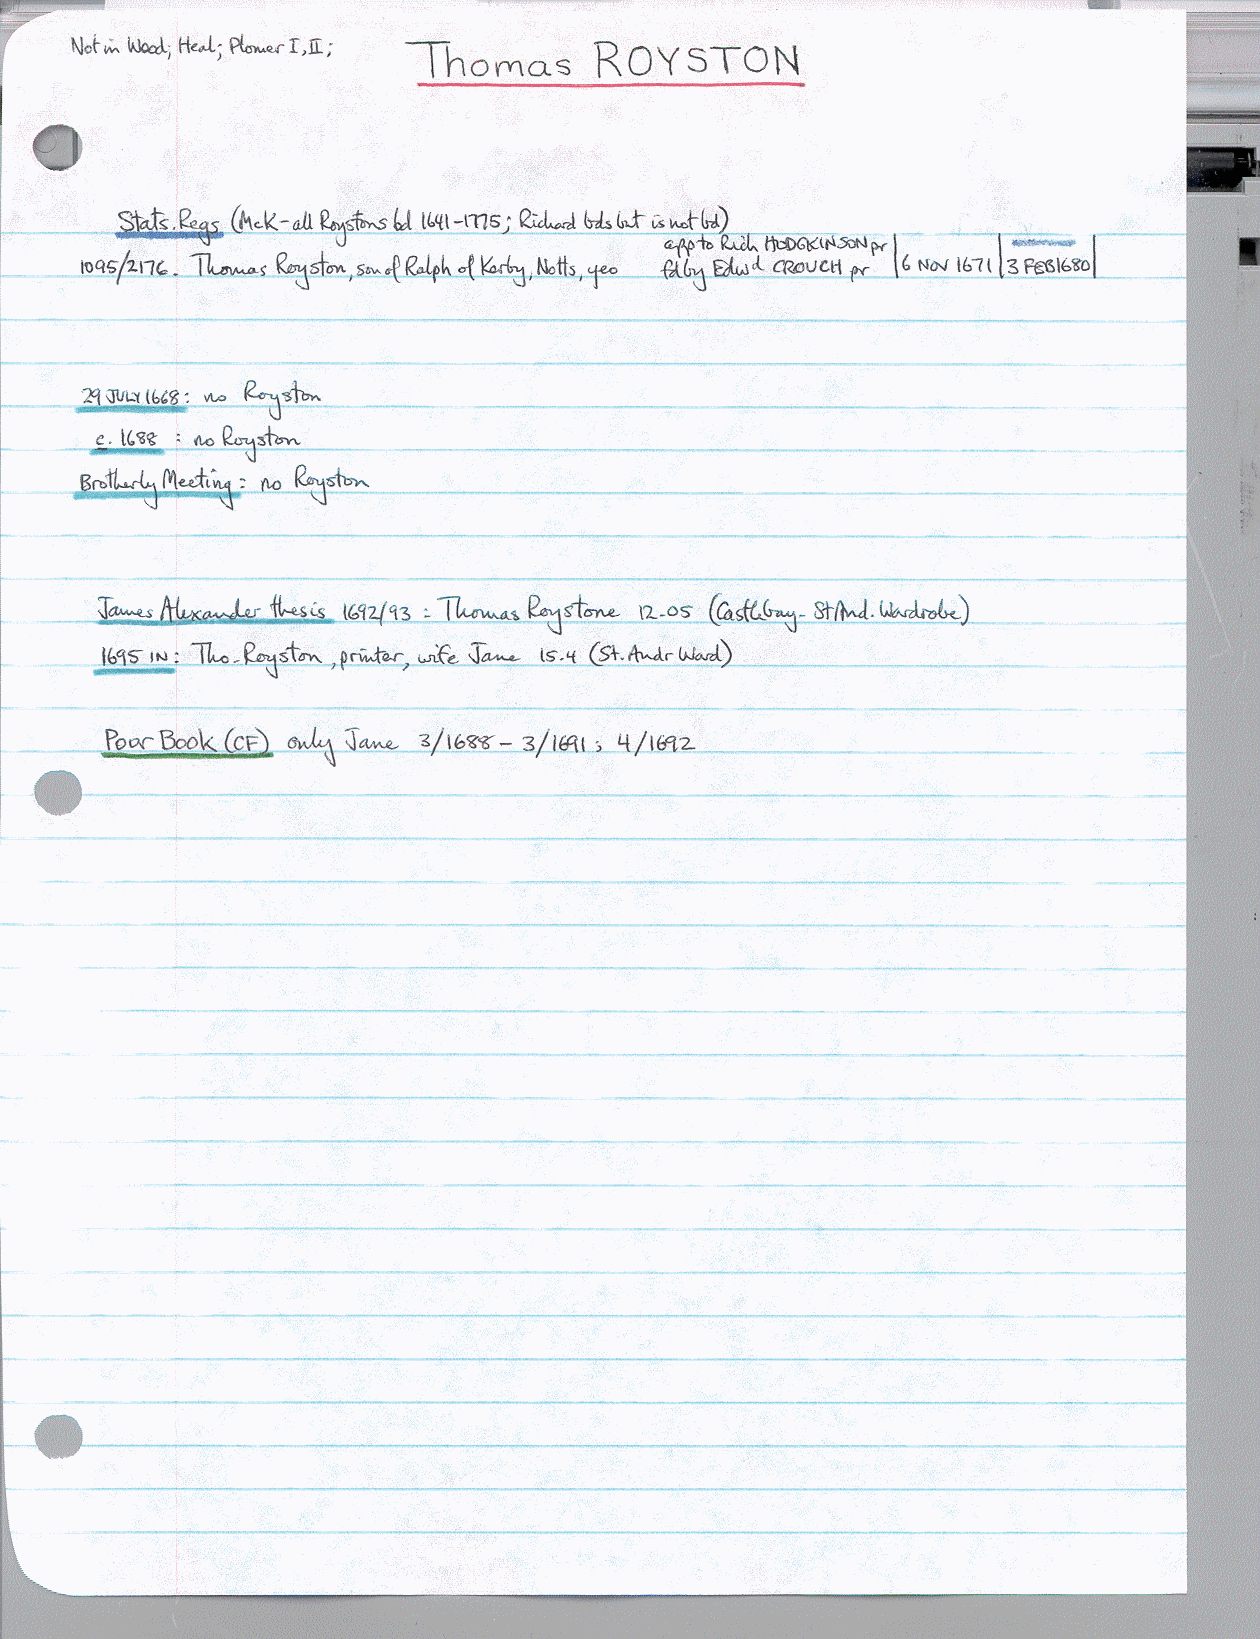 Not in Wood; Heal; Plomer I, II;
Thomas ROYSTON
Stats. Regs (McK - all Roystons bd 1641-1775; Richard bds but is not bd)
app to Rich HODGKINSON pr
1095/2176. Thomas Royston, son of Ralph of Kerby, Notts, yeo fd by Edwd CROUCH pr | 6 NOV 1671 | 3 FEB 1680 |
29 JULY 1668: no Royston
c. 1688 : no Royston
Brotherly Meeting: no Royston
James Alexander thesis 1692/93: Thomas Roystone 12-05 (Castlebay - St And. Wardrobe)
1695 IN: Tho. Royston, printer, wife Jane 15.4 (St. Andr Ward)
Poor Book (CF) only Jane 3/1688 - 3/1691; 4/1692